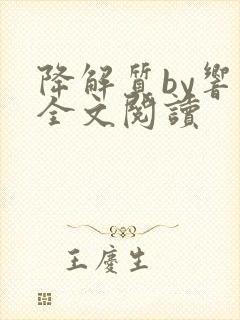 降解質by響
全文閱讀
王慶生